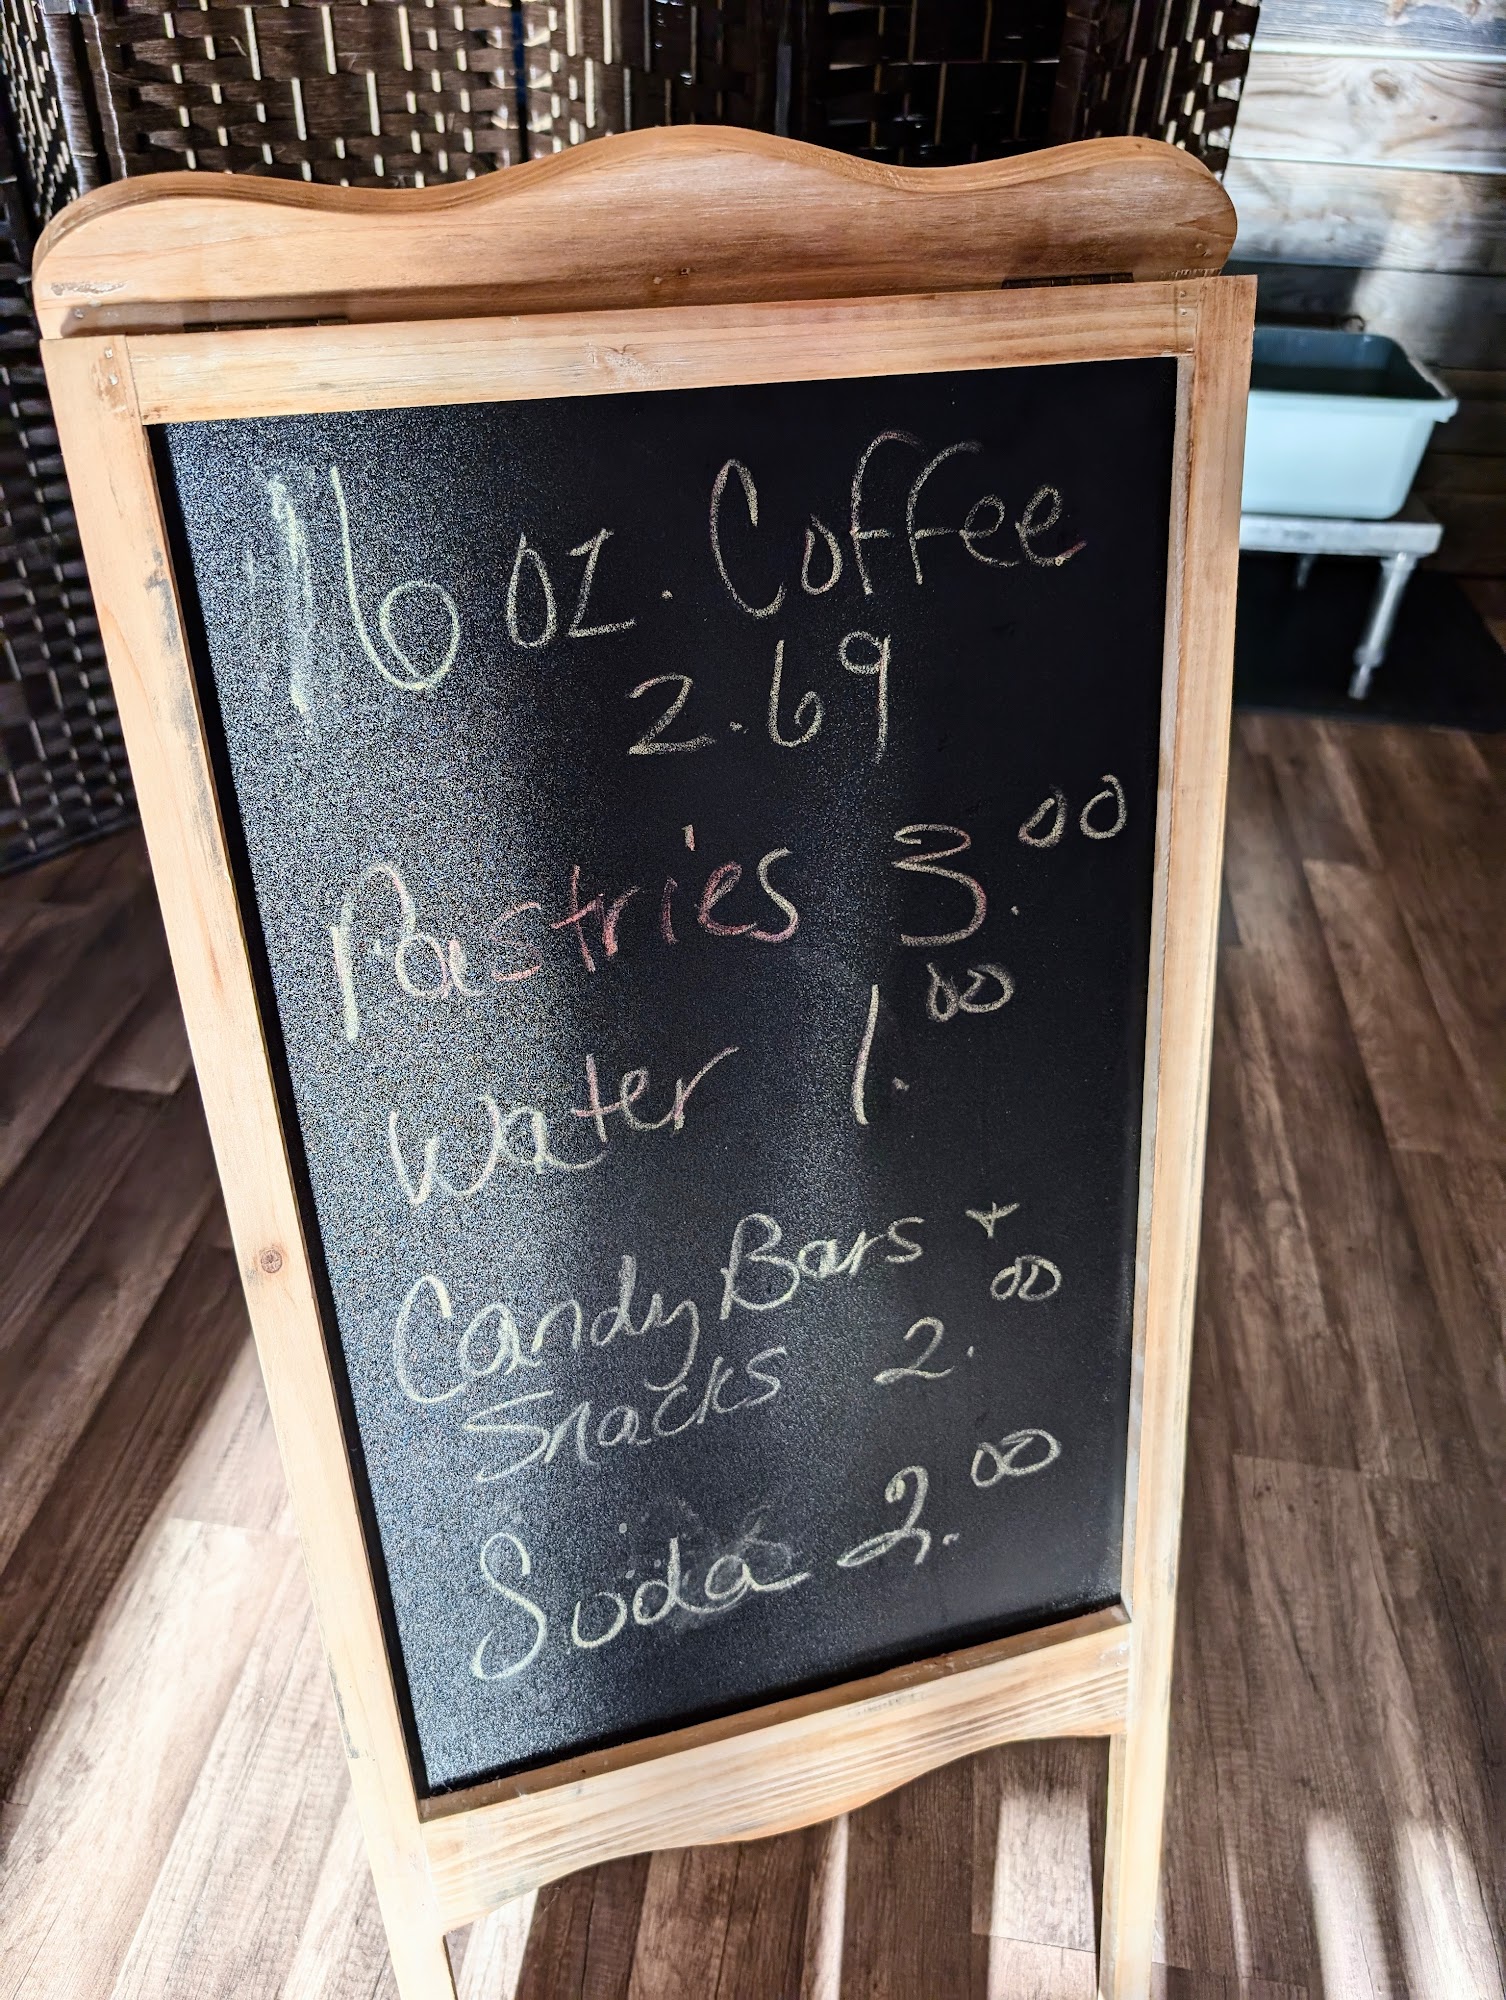 16 oz. Coffee
2.69
Pastries 3.00
Water 1.00
Candy Bars +
Snacks 2.00
Soda 2.00